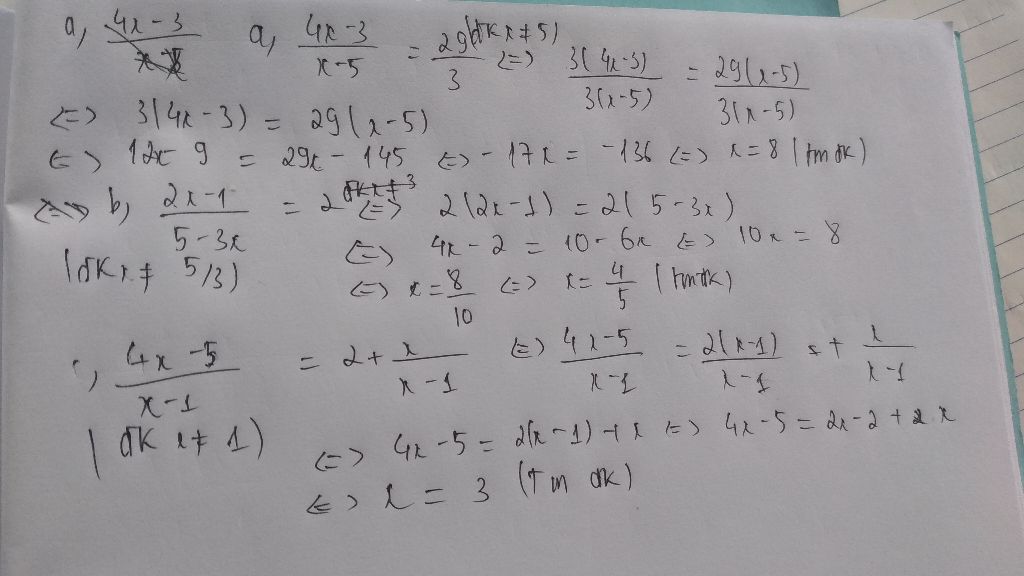 a, 4x-3 a, 4x-3 / x-5 = 29 / 3 (đK x ≠ 5) <=> 3(4x-3) / 3(x-5) = 29(x-5) / 3(x-5)
<=> 3(4x-3) = 29(x-5)
<=> 12x-9 = 29x-145 <=> -17x = -136 <=> x=8 (tm đk)
b, 2x-1 / 5-3x = 2 <=> 2(2x-1) = 2(5-3x)
(đK x ≠ 5/3) <=> 4x-2 = 10-6x <=> 10x = 8
<=> x = 8 / 10 <=> x = 4 / 5 (tmđk)
, 4x-5 / x-1 = 2 + x / x-1 <=> 4x-5 / x-1 = 2(x-1) / x-1 + x / x-1
(đK x ≠ 1) <=> 4x-5 = 2(x-1)+x <=> 4x-5 = 2x-2+x
<=> x = 3 (tm đk)